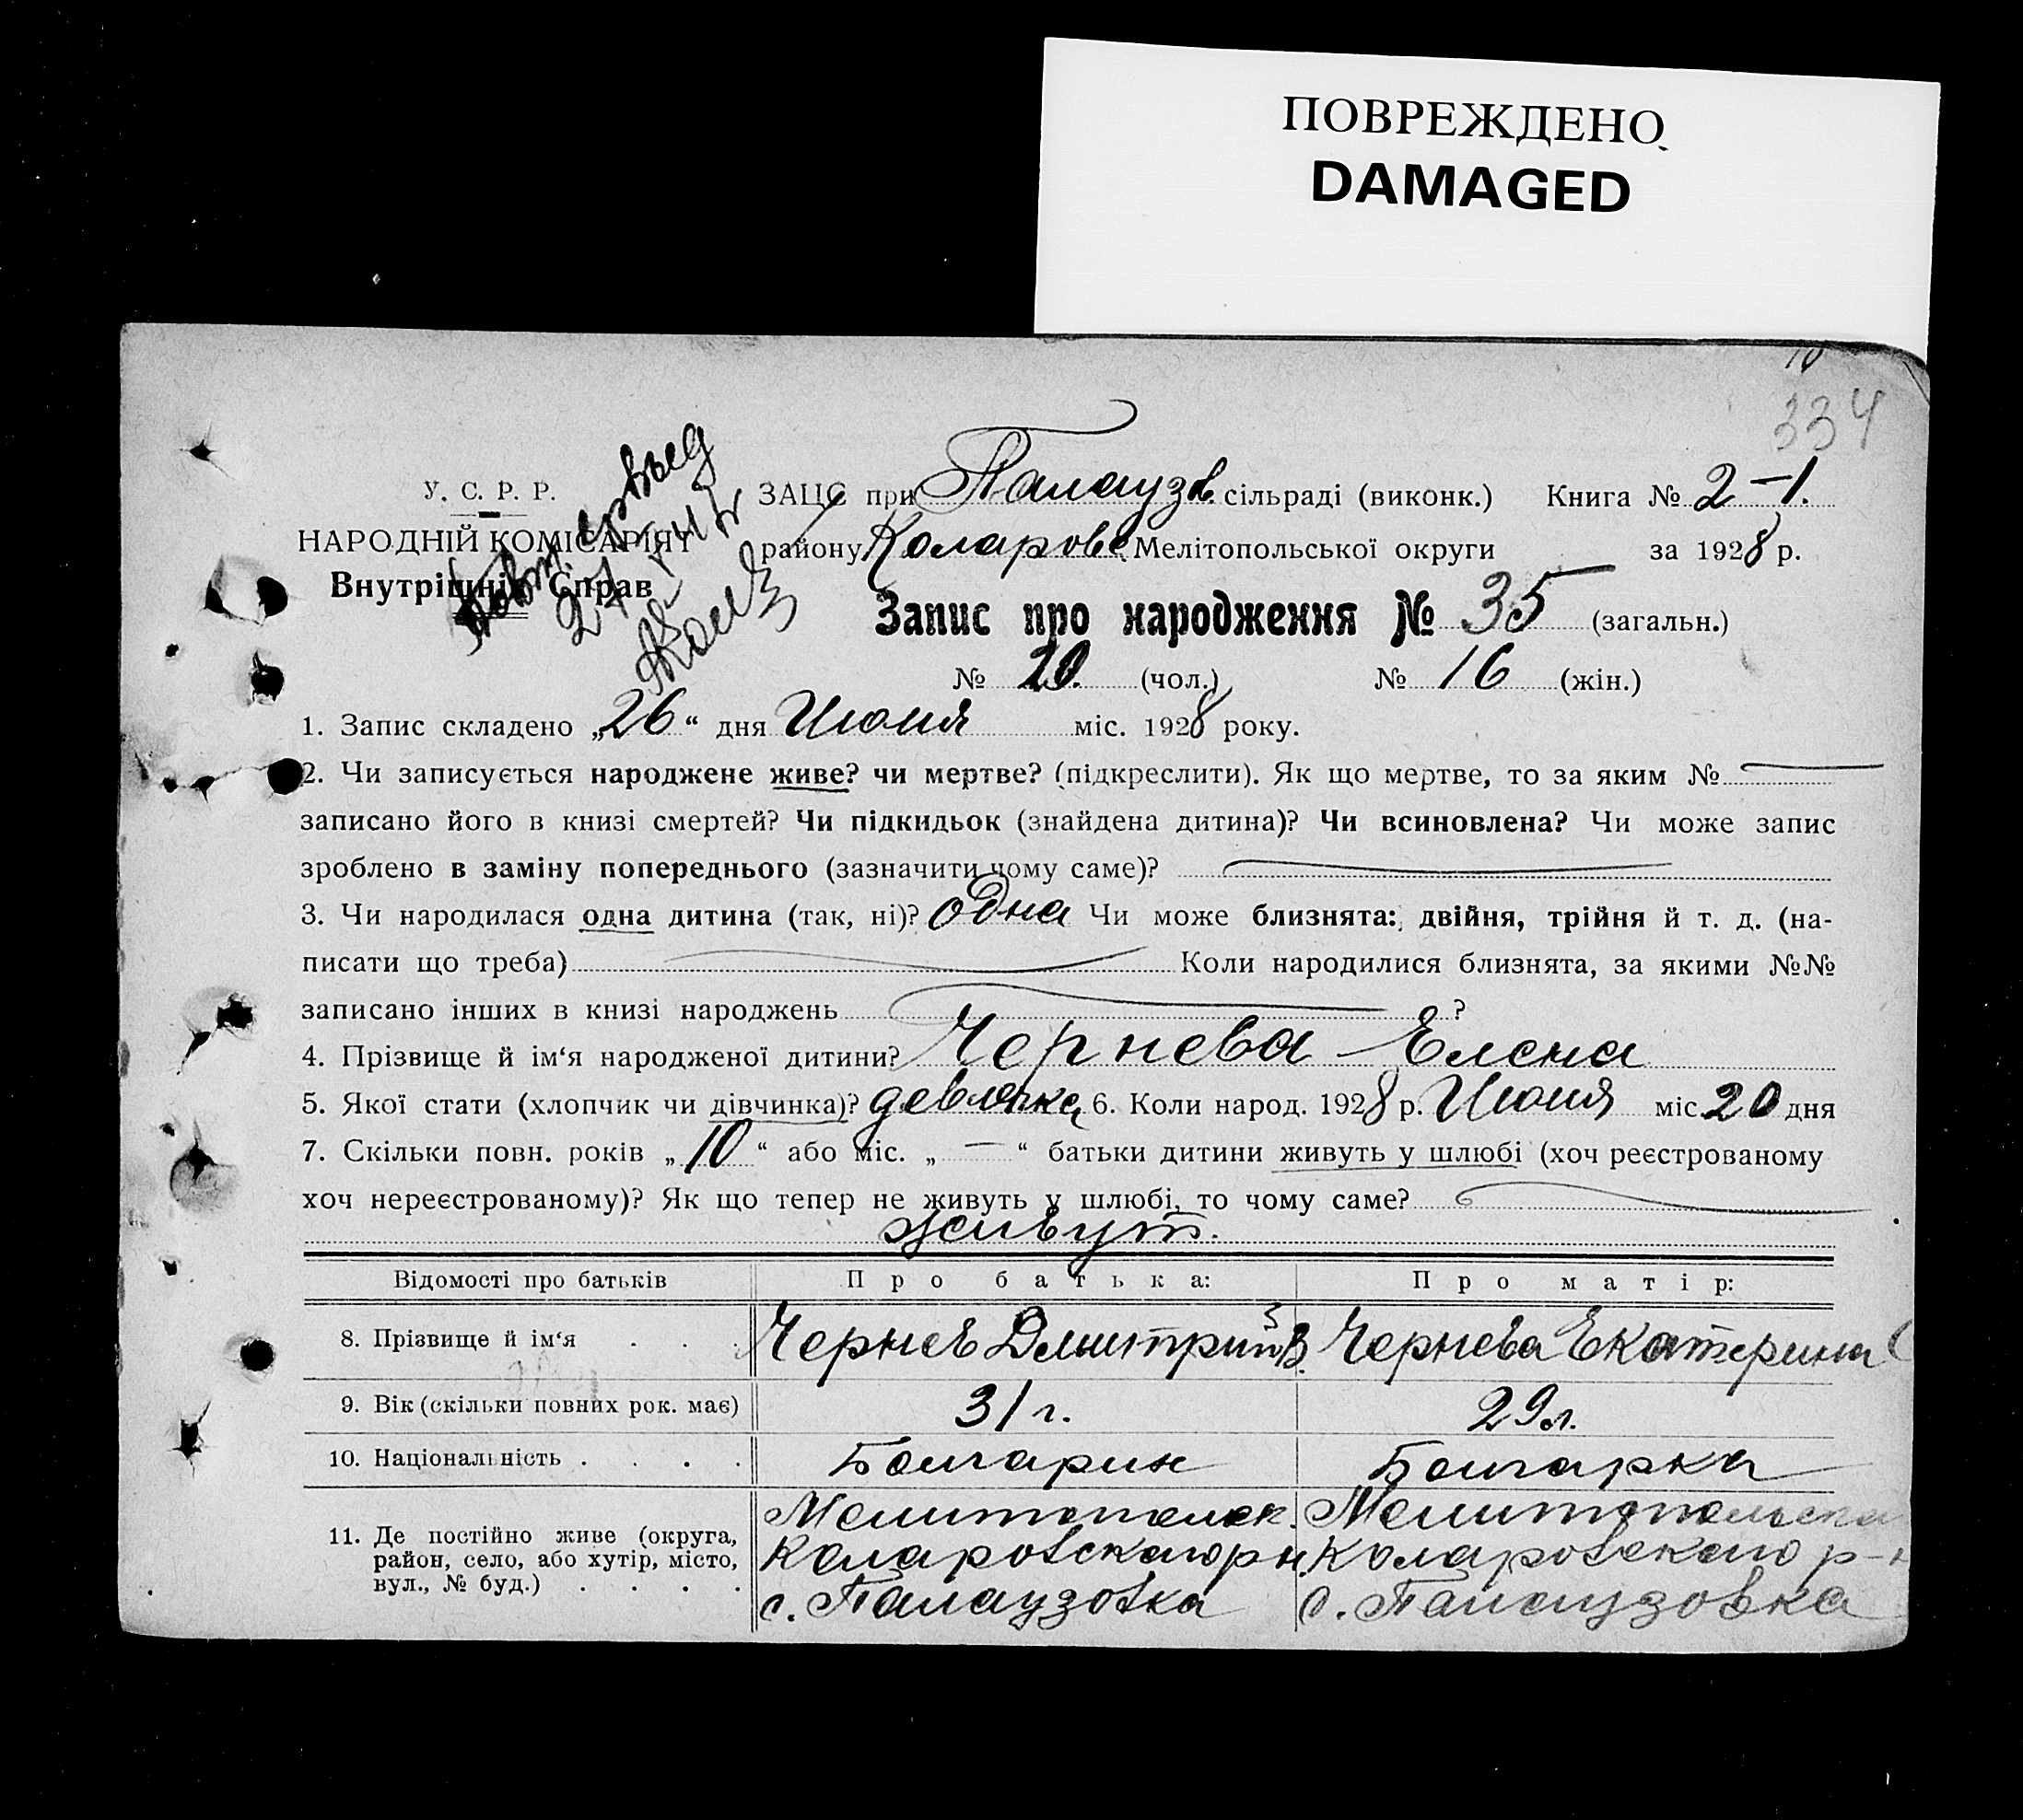 ПОВРЕЖДЕНО
DAMAGED
334
У. С. Р. Р.
НАРОДНІЙ КОМІСАРІЯТ
Внутрішніх Справ
ЗАЦС при Палаузов. сільраді (виконк.) Книга № 2-1.
району Коларовс Мелітопольської округи за 1928 р.
Запис про народження № 35 (загальн.)
№ 20. (чол.) № 16 (жін.)
1. Запис складено „26“ дня Июня міс. 1928 року.
2. Чи записується народжене живе? чи мертве? (підкреслити). Як що мертве, то за яким №
записано його в книзі смертей? Чи підкидьок (знайдена дитина)? Чи всиновлена? Чи може запис
зроблено в заміну попереднього (зазначити чому саме)?
3. Чи народилася одна дитина (так, ні)? одна Чи може близнята: двійня, трійня й т. д. (на-
писати що треба) Коли народилися близнята, за якими №№
записано інших в книзі народжень ?
4. Прізвище й ім‘я народженої дитини? Чернева Елена
5. Якої стати (хлопчик чи дівчинка)? девочка 6. Коли народ. 1928 р. Июня міс. 20 дня
7. Скільки повн. років „10“ або міс. „—“ батьки дитини живуть у шлюбі (хоч реєстрованому
хоч нереєстрованому)? Як що тепер не живуть у шлюбі, то чому саме?
живут.
Відомості про батьків Про батька: Про матір:
8. Прізвище й ім‘я . . . Чернев Дмитрий В. Чернева Екатерина
9. Вік (скільки повних рок. має) 31 г. 29 л.
10. Національність . . . . Болгарин Болгарка
11. Де постійно живе (округа, район, село, або хутір, місто, вул., № буд.) . . . .
Мелитопольск.
Коларовского рн.
с. Палаузовка
Мелитопольска
Коларовского р-н
с. Палаузовка